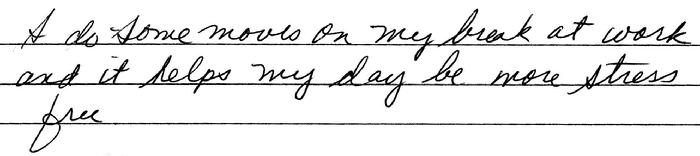 I do some moves on my break at work
and it helps my day be more stress
free